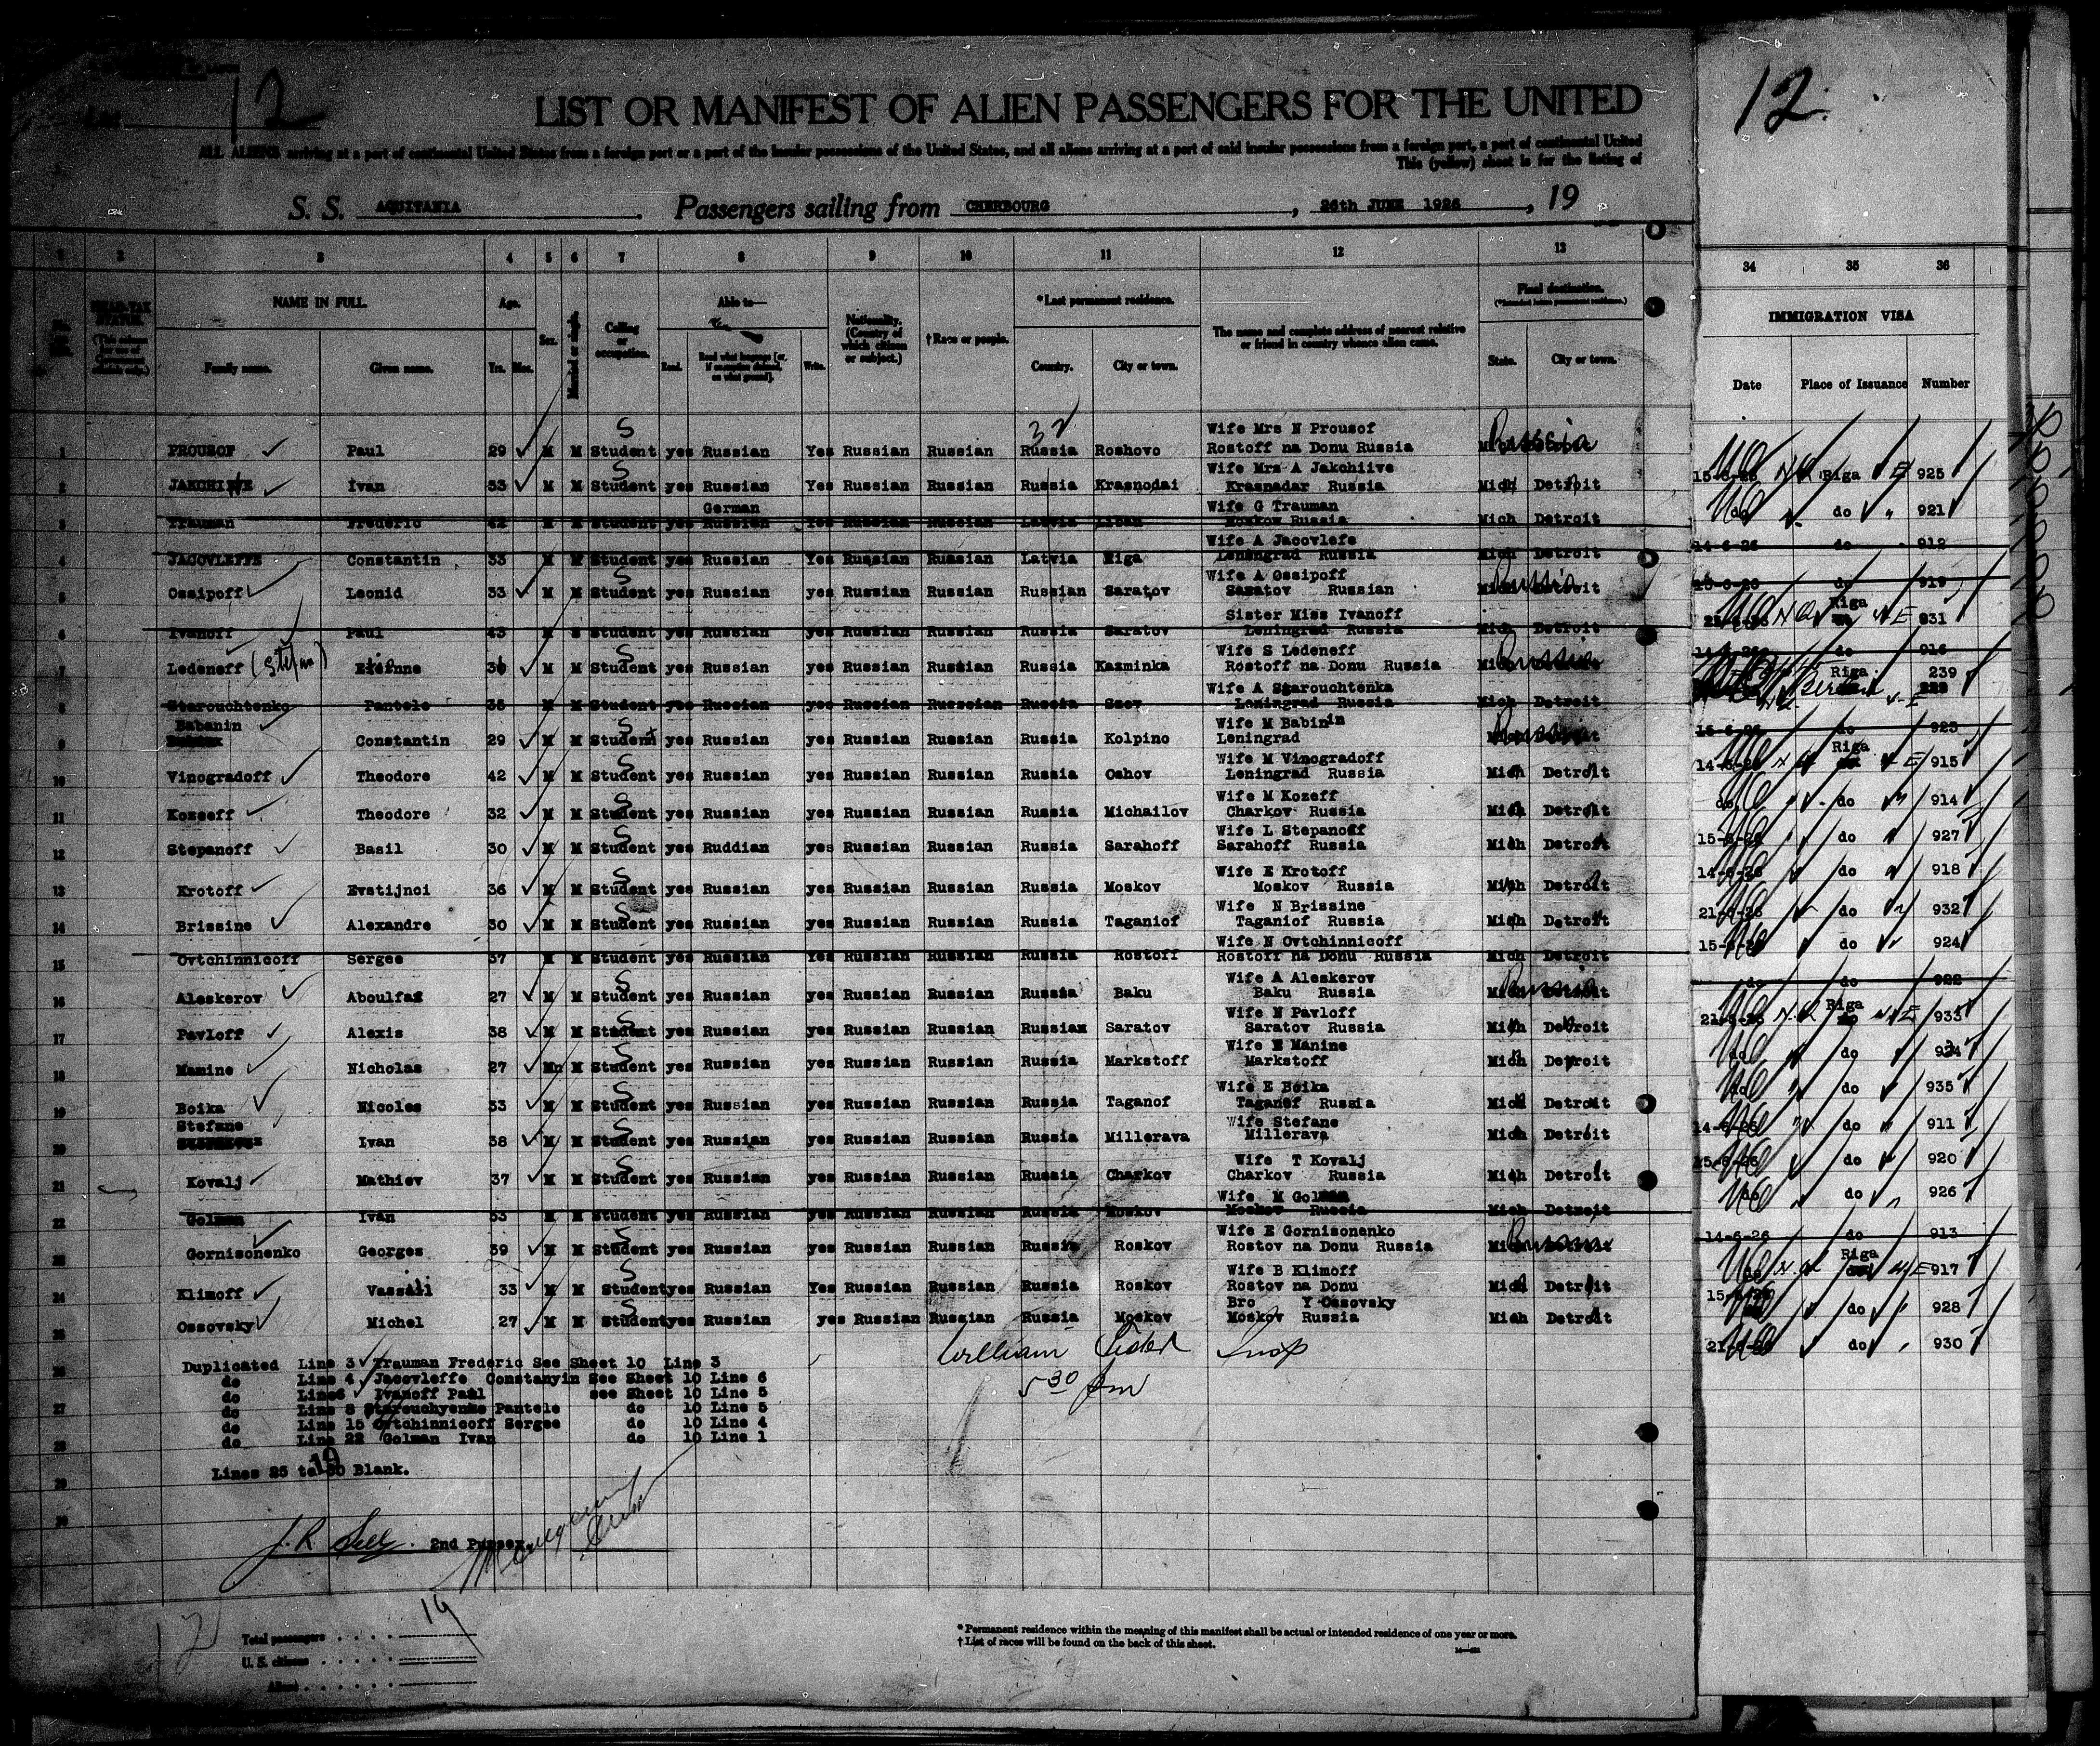 12
LIST OR MANIFEST OF ALIEN PASSENGERS FOR THE UNITED
ALL ALIENS arriving at a port of continental United States from a foreign port or a port of the insular possessions of the United States, and all aliens arriving at a port of said insular possessions from a foreign port, a port of continental United
This (yellow) sheet is for the listing of
S. S. AQUITANIA Passengers sailing from CHERBOURG, 26th JUNE 1926, 19
1 2 3 4 5 6 7 8 9 10 11 12 13
HEAD-TAX STATUS
NAME IN FULL
Family name. Given name.
Age.
Yrs. Mos.
Sex.
Married or single.
Calling or occupation.
Able to—
Read. Read what language [or, if exemption claimed, on what ground]. Write.
Nationality. (Country of which citizen or subject.)
†Race or people.
*Last permanent residence.
Country. City or town.
The name and complete address of nearest relative or friend in country whence alien came.
Final destination.
State. City or town.
32
1 PROUSOF Paul 29 M M Student yes Russian Yes Russian Russian Russia Roshovo Wife Mrs N Prousof Rostoff na Donu Russia Russia
2 Ivan 33 M M Student yes Russian Yes Russian Russian Russia Krasnodai Wife Mrs A Jakchiive Krasnadar Russia Mich Detroit
3 Trauman Frederic 42 M M Student yes German Russian Yes Russian Russian Latvia Liban Wife G Trauman Moskow Russia Mich Detroit
4 JACOVLEFFE Constantin 33 M M Student yes Russian Yes Russian Russian Latvia Riga Wife A Jacovlefe Leningrad Russia Mich Detroit
5 Ossipoff Leonid 33 M M Student yes Russian yes Russian Russian Russian Saratov Wife A Ossipoff Saratov Russian Russia
6 Ivanoff Paul 43 M S Student yes Russian yes Russian Russian Russia Saratov Sister Miss Ivanoff Leningrad Russia Mich Detroit
7 Ledeneff (Stefan) M M Student yes Russian yes Russian Russian Russia Kazminka Wife S Ledeneff Rostoff na Donu Russia Russia
8 Starouchtenko Pantele 35 M M Student yes Russian yes Russian Russian Russia Wife A Starouchtenka Leningrad Russia Mich Detroit
9 Babanin Constantin 29 M M Student yes Russian yes Russian Russian Russia Kolpino Wife M Babinin Leningrad Russia
10 Vinogradoff Theodore 42 M M Student yes Russian yes Russian Russian Russia Oshov Wife M Vinogradoff Leningrad Russia Mich Detroit
11 Kozeeff Theodore 32 M M Student yes Russian yes Russian Russian Russia Michailov Wife M Kozeff Charkov Russia Mich Detroit
12 Stepanoff Basil 30 M M Student yes Ruddian yes Russian Russian Russia Sarahoff Wife L Stepanoff Sarahoff Russia Mich Detroit
13 Krotoff Evstijnci 36 M M Student yes Russian yes Russian Russian Russia Moskov Wife E Krotoff Moskov Russia Mich Detroit
14 Brissine Alexandre 30 M M Student yes Russian yes Russian Russian Russia Taganiof Wife N Brissine Taganiof Russia Mich Detroit
15 Ovtchinnicoff Sergee 37 M M Student yes Russian Yes Russian Russian Russia Rostoff Wife N Ovtchinnicoff Rostoff na Donu Russia Mich Detroit
16 Aleskerov Aboulfas 27 M M Student yes Russian yes Russian Russian Russia Baku Wife A Aleskerov Baku Russia Russia
17 Pavloff Alexis 38 M M Student yes Russian yes Russian Russian Russian Saratov Wife N Pavloff Saratov Russia Mich Detroit
18 Mamine Nicholas 27 M M Student yes Russian yes Russian Russian Russia Markstoff Wife E Manine Markstoff Mich Detroit
19 Boika Nicoles 33 M M Student yes Russian yes Russian Russian Russia Taganof Wife E Boika Taganof Russia Mich Detroit
20 Stefane Ivan 38 M M Student yes Russian yes Russian Russian Russia Millerava Wife Stefane Millerava Mich Detroit
21 Kovalj Mathiev 37 M M Student yes Russian yes Russian Russian Russia Charkov Wife T Kovalj Charkov Russia Mich Detroit
22 Golman Ivan 33 M M Student yes Russian yes Russian Russian Russia Moskov Wife M Golman Moskov Russia Mich Detroit
23 Gornisonenko Georges 39 M M Student yes Russian yes Russian Russian Russia Roskov Wife E Gornisonenko Rostov na Donu Russia Russia
24 Klimoff Vassili 33 M M Student yes Russian Yes Russian Russian Russia Roskov Wife B Klimoff Rostov na Donu Mich Detroit
25 Ossovsky Michel 27 M M Student yes Russian yes Russian Russian Russia Moskov Bro Y Ossovsky Moskov Russia Mich Detroit
William Insp
5 30 pm
Duplicated Line 3 Trauman Frederic See Sheet 10 Line 3
do Line 4 Jacovleffe Constanyin See Sheet 10 Line 6
do Line6 Ivanoff Paul see Sheet 10 Line 5
do Line 8 Starouchyenko Pantele do 10 Line 5
do Line 15 Ovtchinnicoff Sergee do 10 Line 4
do Line 22 Golman Ivan do 10 Line 1
Lines 25 to 30 Blank.
19
J. R. 2nd Purser
19
Total passengers
U. S. citizens
Aliens
*Permanent residence within the meaning of this manifest shall be actual or intended residence of one year or more.
†List of races will be found on the back of this sheet.
12
34 35 36
IMMIGRATION VISA
Date Place of Issuance Number
15-6-26 Riga 925
do do 921
14-6-26 do 912
15-6-26 do 919
21-6-26 Riga 931
14-6-26 do 916
Riga Berlin 239
15-6-26 do 923
14-6-26 Riga 915
do do 914
15-6-26 do 927
14-6-26 do 918
21-6-26 do 932
15-6-26 do 924
do do 922
21-6-26 Riga 933
do do 934
do do 935
14-6-26 do 911
15-6-26 do 920
do do 926
14-6-26 do 913
do Riga 917
15-6-26 do 928
21-6-26 do 930